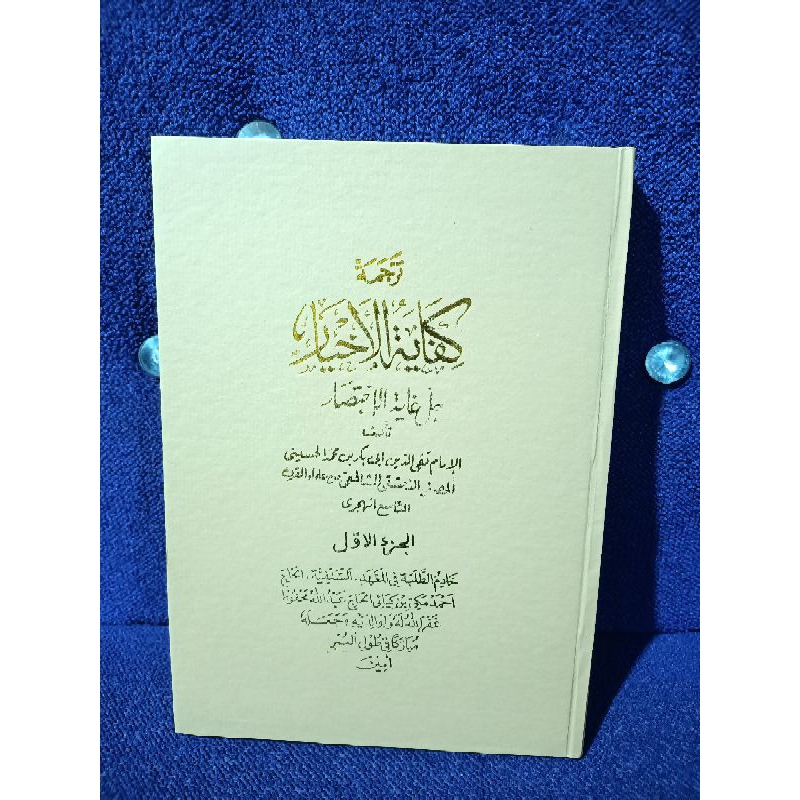 تَرْجَمَة
كفاية الأخيار
حل غاية الإختصار
تأليف
الإمام تقي الدين ابى بكر بن محمد الحسينى
الدمشقى الشافعى من علماء القرن
التاسع الهجرى
الجزء الاوّل
خَادِمُ الطَّلَبَة فِي الْمَعْهَدِ السَّلَفِيَّة الحاج
احمد مكى بن كياهى الحاج عَبْدُ اللهْ محفوظ
غَفَرَ اللهُ لَهُ وَلِوَالِدَيْهِ وَجَعَلَهُ
مُبَارَكًا فِي طُولِ الْعُمْرِ
آمِيْن